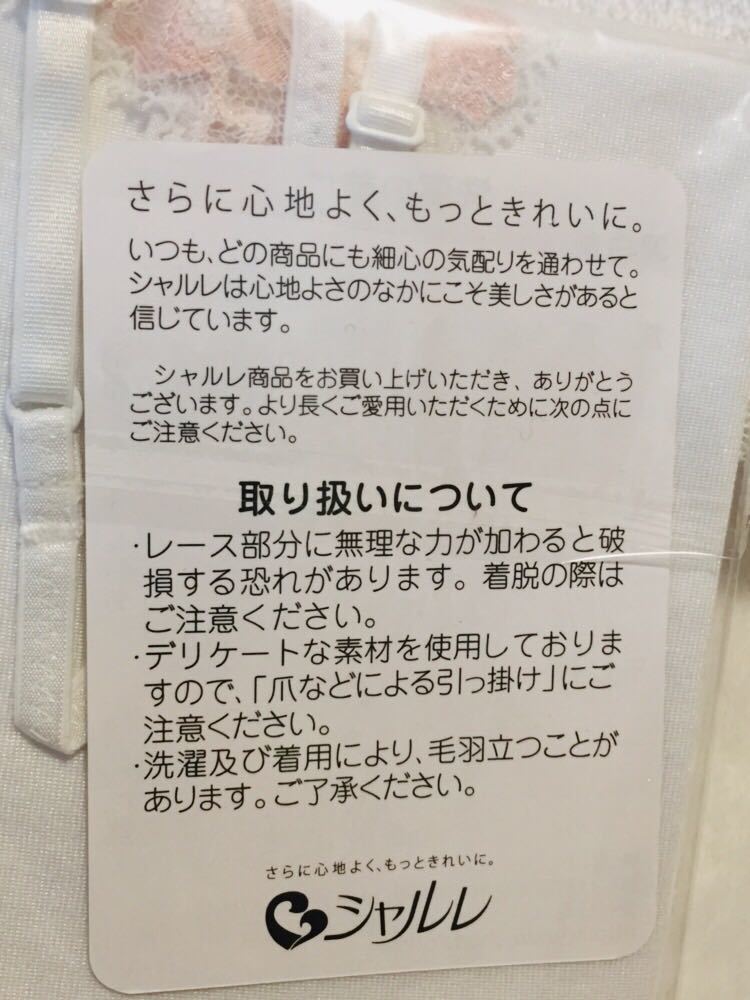 さらに心地よく、もっときれいに。
いつも、どの商品にも細心の気配りを通わせて。
シャルレは心地よさのなかにこそ美しさがあると
信じています。
シャルレ商品をお買い上げいただき、ありがとう
ございます。より長くご愛用いただくために次の点に
ご注意ください。
取り扱いについて
・レース部分に無理な力が加わると破
損する恐れがあります。着脱の際は
ご注意ください。
・デリケートな素材を使用しておりま
すので、「爪などによる引っ掛け」にご
注意ください。
・洗濯及び着用により、毛羽立つことが
あります。ご了承ください。
さらに心地よく、もっときれいに。
シャルレ